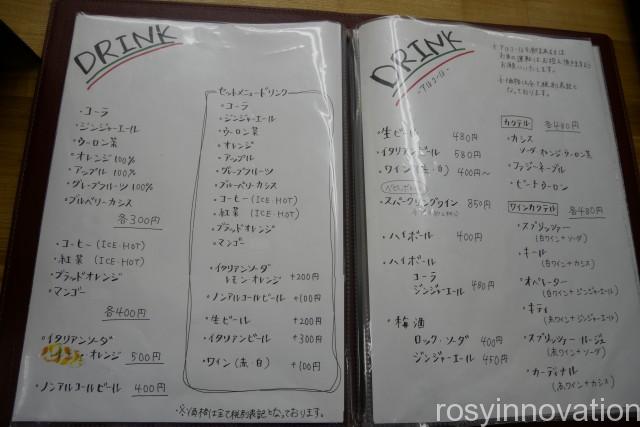 DRINK
・コーラ
・ジンジャーエール
・ウーロン茶
・オレンジ 100%
・アップル 100%
・グレープフルーツ 100%
・ブルーベリーカシス
各300円
・コーヒー (ICE・HOT)
・紅茶 (ICE・HOT)
・ブラッドオレンジ
・マンゴー
各400円
・イタリアンソーダ
オレンジ 500円
・ノンアルコールビール 400円
セットメニュードリンク
・コーラ
・ジンジャーエール
・ウーロン茶
・オレンジ
・アップル
・グレープフルーツ
・ブルーベリーカシス
・コーヒー (ICE・HOT)
・紅茶 (ICE・HOT)
・ブラッドオレンジ
・マンゴー
・イタリアンソーダ
レモン・オレンジ +200円
・ノンアルコールビール +100円
・生ビール +200円
・イタリアンビール +300円
・ワイン (赤・白) +100円
※価格は全て税別表記となっております。
DRINK
-アルコール-
※アルコールを飲まれる方は
お車の運転はお控え頂きますよう
お願いいたします。
※価格は全て税別表記と
なっております。
・生ビール 480円
・イタリアンビール 580円
・ワイン (赤・白) 400円～
・スパークリングワイン 850円
・ハイボール 400円
・ハイボール
コーラ
ジンジャーエール 480円
・梅酒
ロック・ソーダ 400円
ジンジャーエール 450円
カクテル 各480円
・カシス
ソーダ・オレンジ・ウーロン茶
・ファジーネーブル
・ピーチウーロン
ワインカクテル 各480円
・スプリッツァー
(白ワイン+ソーダ)
・キール
(白ワイン+カシス)
・オペレーター
(白ワイン+ジンジャーエール)
・キティ
(赤ワイン+ジンジャーエール)
・スプリッツァールージュ
(赤ワイン+ソーダ)
・カーディナル
(赤ワイン+カシス)
rosyinnovation